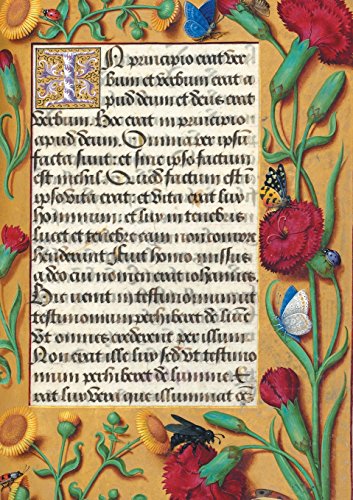 In principio erat ver
bum et verbum erat a
pud deum et deus erat
verbum. Hoc erat in principio
apud deum. Omnia per ipsum
facta sunt: et sine ipso factum
est nichil. Quod factum est in
ipso vita erat: et vita erat lux
hominum: et lux in tenebris
lucet et tenebre eam non compre
henderunt Fuit homo missus
a deo cui nomen erat iohannes.
Hic venit in testimonium ut
testimonium perhiberet de lumine
Ut omnes crederent per illum
Non erat ille lux sed ut testimo
nium perhiberet de lumine E
rat lux vera que illuminat